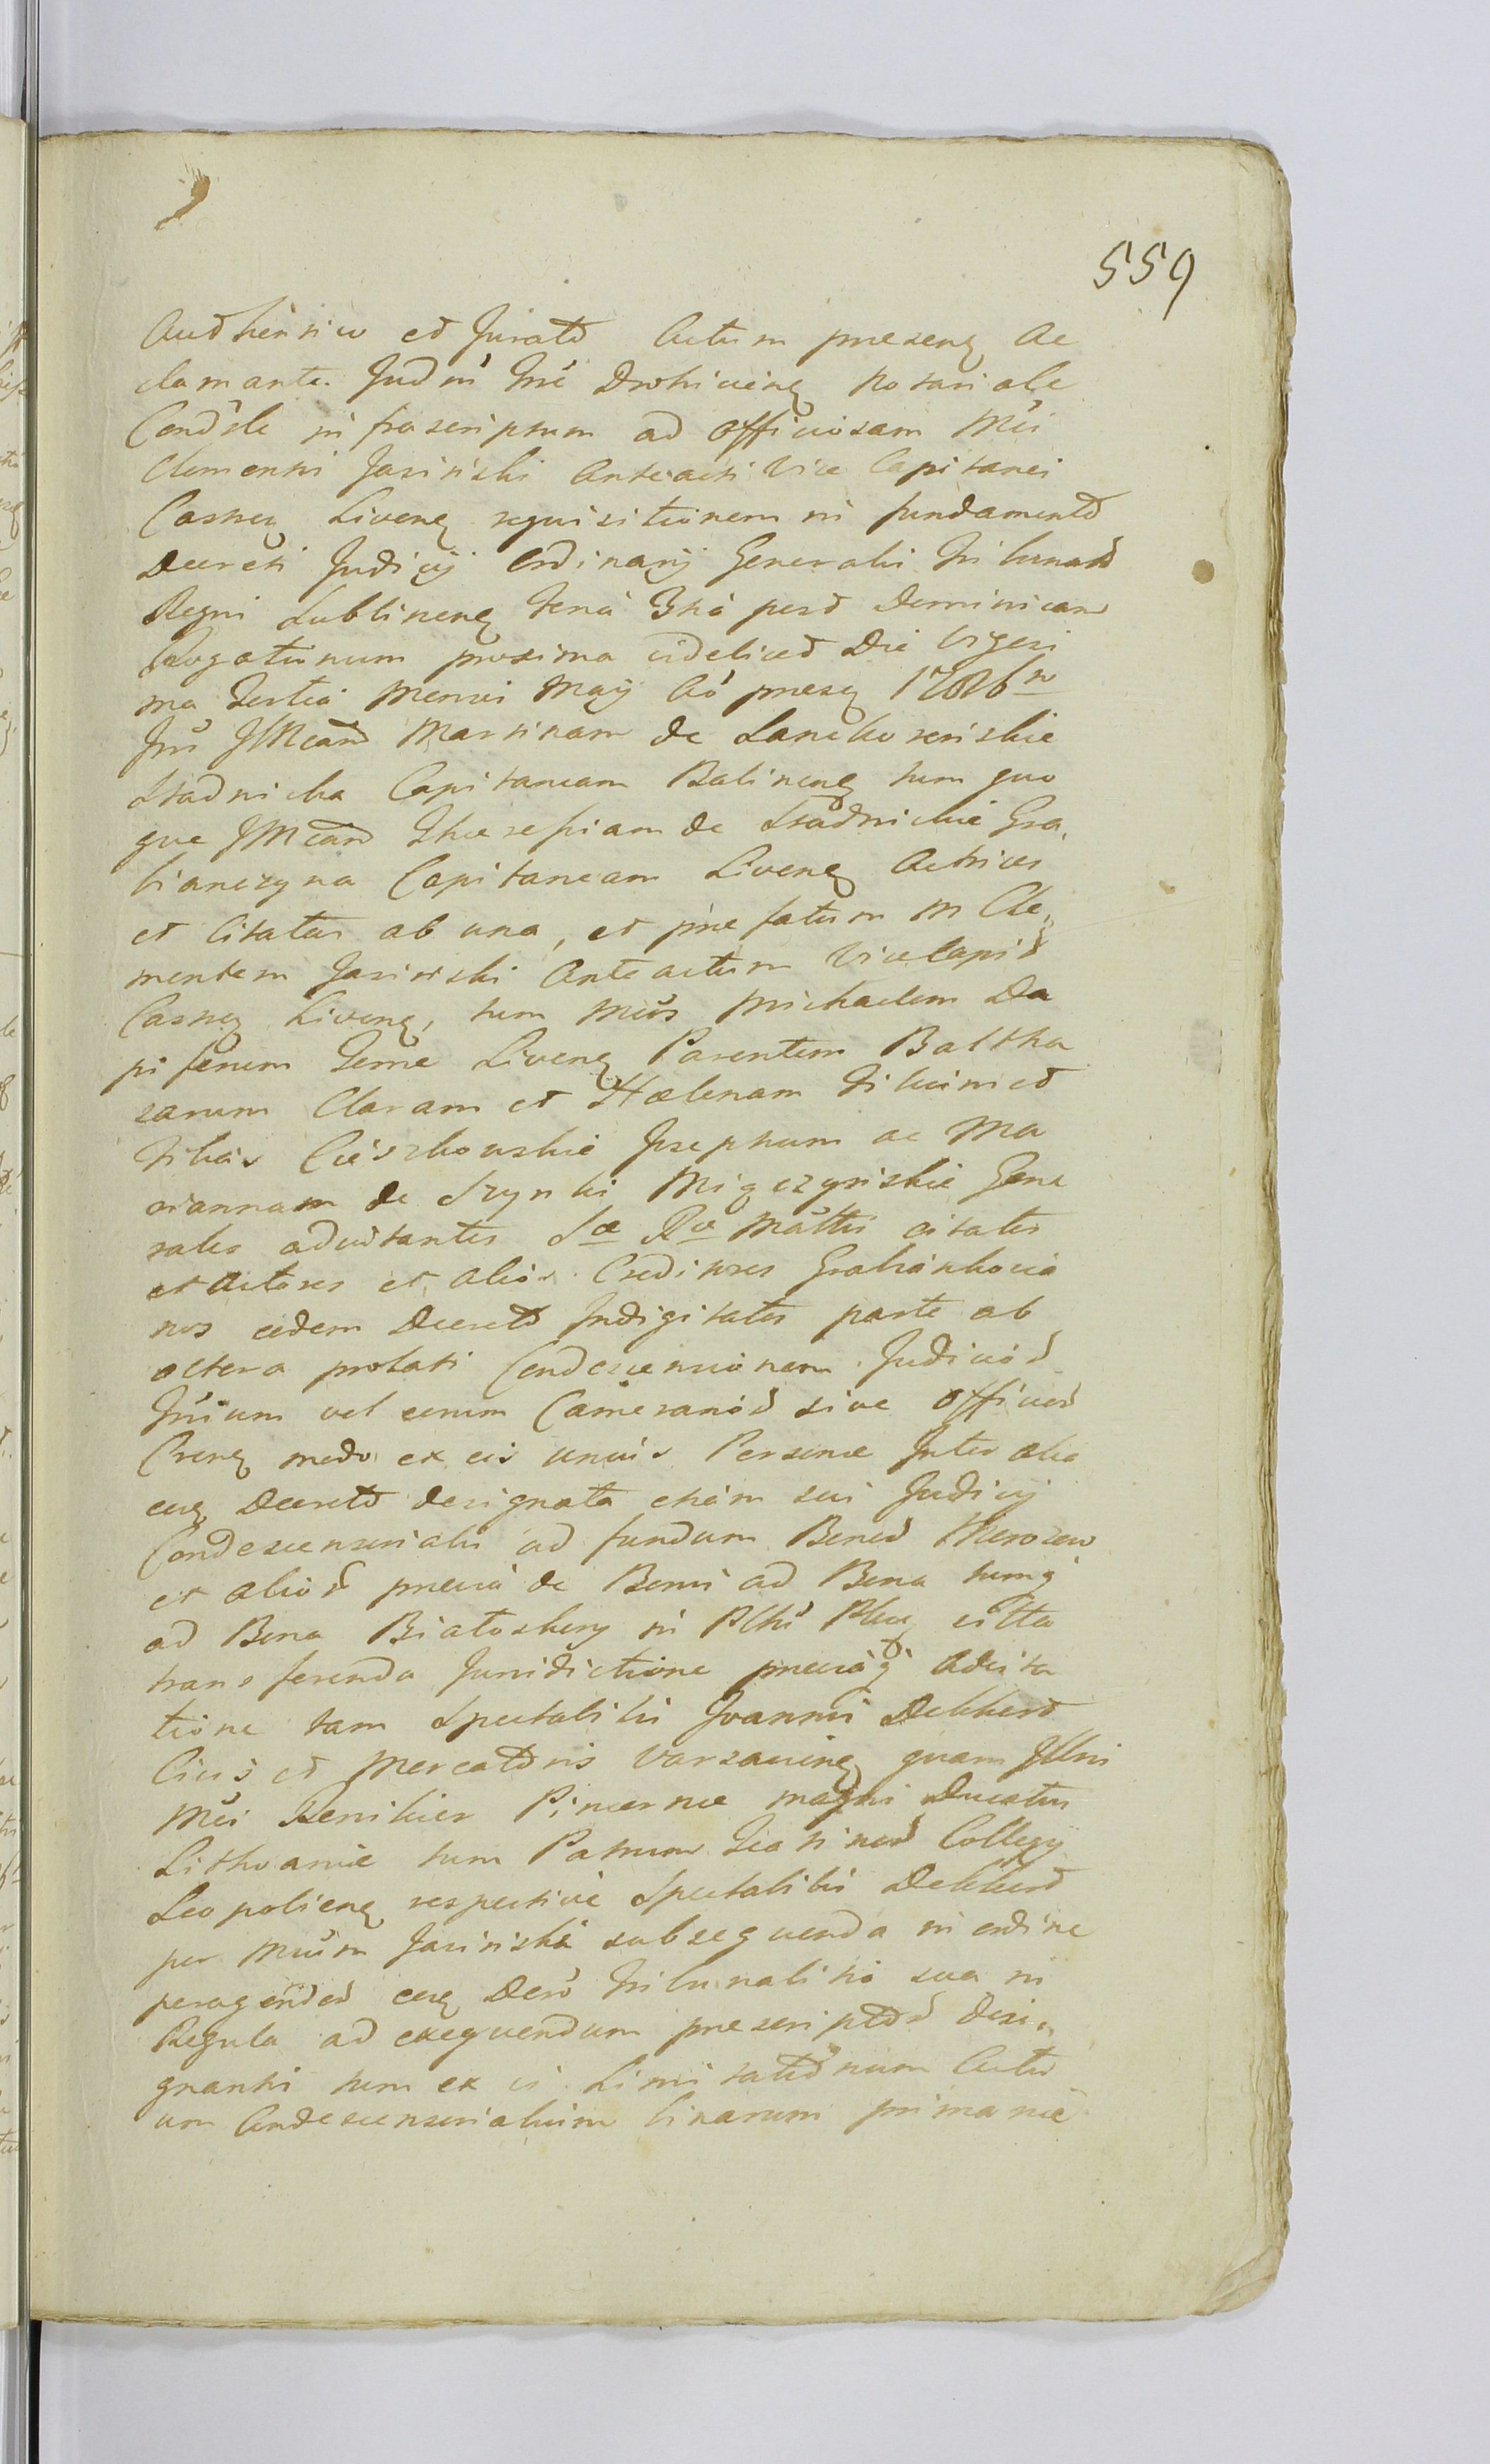 559
Authentico et Jurato Actum praesens Ac
clamante Judni Tnè Drohicens Notariale
Condsle infrascriptum ad officiosam Mci
Clementi Jasinski Anteacti Vice Capitanei
Castren Livens requisitionem in fundamento
Decreti Judicij Ordinarij Generalis Tribunals
Regni Lublinens feriâ 3tiâ post Dominicam
Rogationum proxima videlicet Die Vigesi
ma Tertia Mensis Maij Aô praesen 1786to
Marsinam de Lanckoronskie
Stadnicka Capitaneam Balinens tum quo
que Theresfiam de Stadnickie Gra,
bianczyna Capitaneam Livens Actrices
et Citatas ab una, et praefatum M Cle,
mentem Jasinski Anteactum Vice Capit
Castren Livens, tum Mcos Michaelem Da
piferum Terrae Livens Parentem Baltha
zarum Claram et Hælenam Filium et
Filias Cieszkowskie Josephum ac Ma
riannam de Szynki Miączynskie Gene
rales adiutantes Sæ Ræ Mattis citatos
et Actores et alios Creditores Grabiankovia
nos eodem Decreto Indigitatos parte ab
altera prolati Condescensionem Judicior
vel eorum Camerarior sive Officior
Crens modo ex eis unius Personæ Inter alia
eoq Decreto designata etiam sui Judicij
Condescensorialis ad fundum Bonor Morozow
et alior praevia de Bonis ad Bona tumq
ad Bona Białozkury in Pltu citta
transferenda Jurisdictione praeviaq Adcita
tione tam Spectabilis Joannis Dekkert
Civis et Mercatoris Varsaviens quam Illris
Mci Renikier Pincernæ magni Ducatus
Lithvaniæ tum Patrum Teatinor Collegij
Leopoliens respective Spectabilis Dekkert
per Mcum Jasinski subsequenda in ordine
peragendor eoq Dero Tribunalitio sua in
Regula ad exequendum praescriptor desi,
gnanti tum ex vi Limitationum Actor
um Condescensorialium binarum primariæ